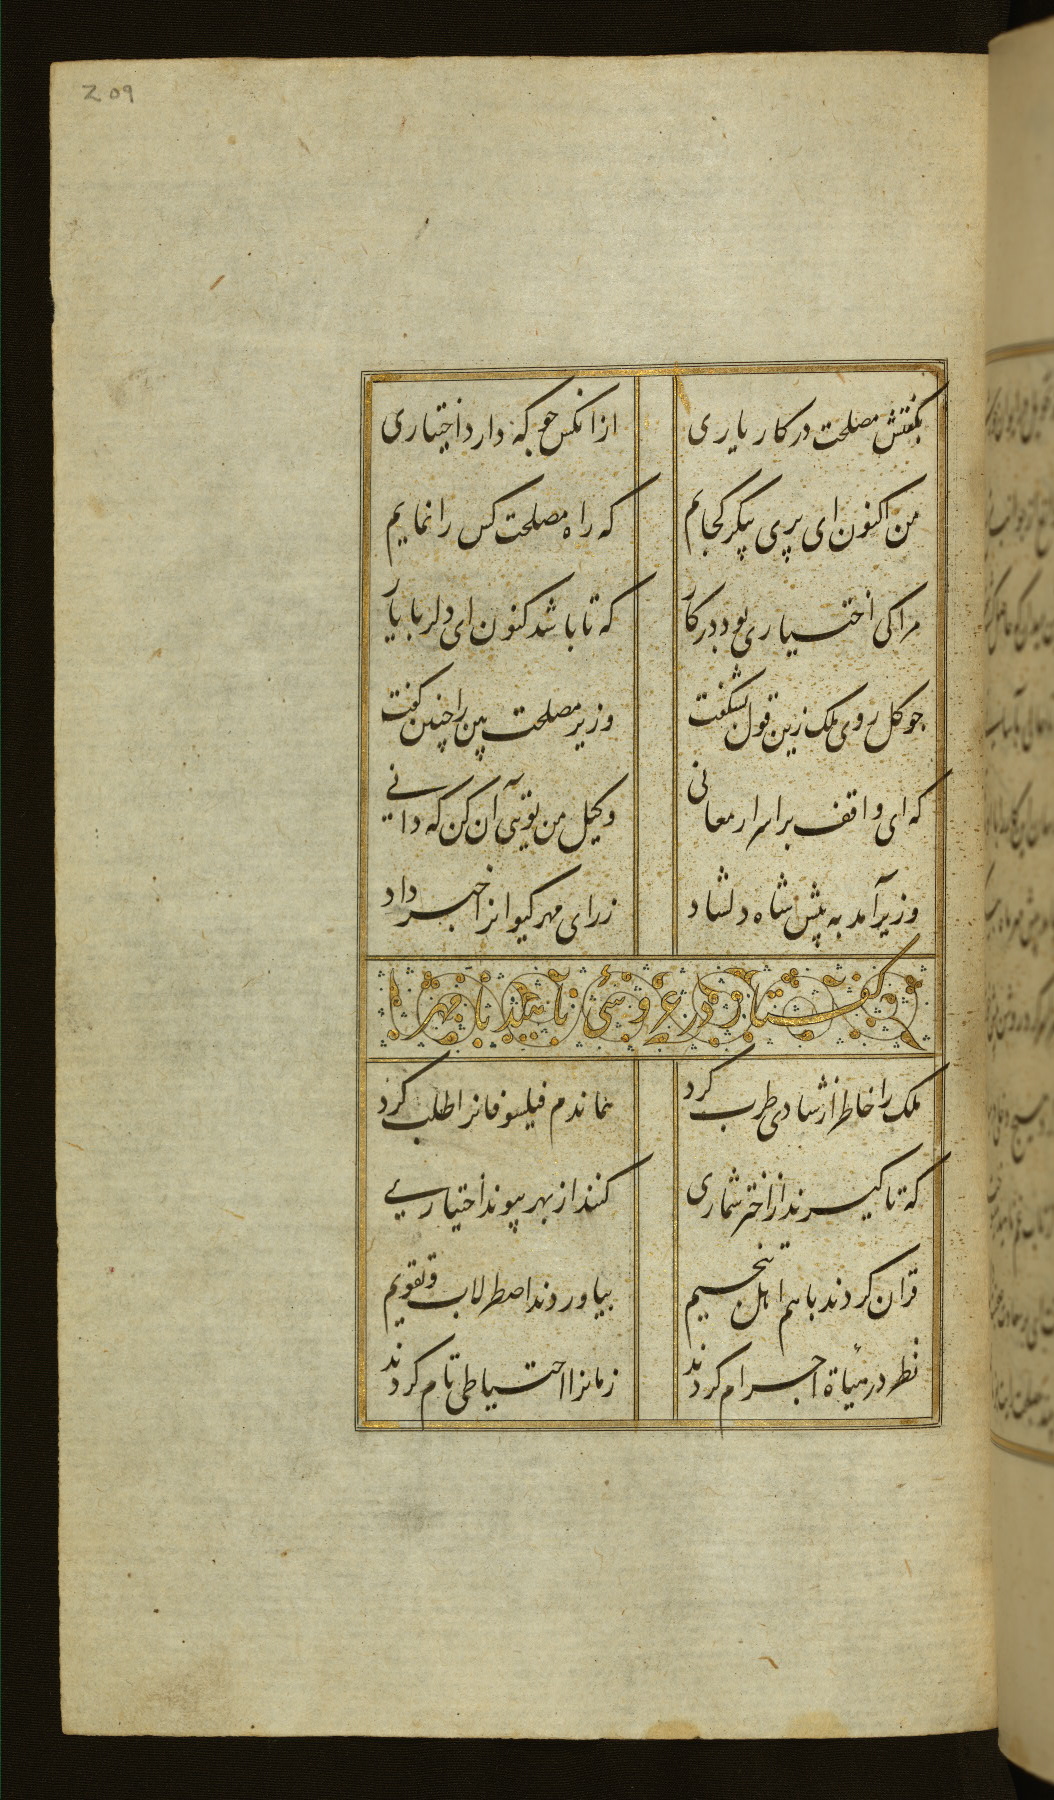 209
بگفتش مصلحت در کار یاری
ازانکس جو که دارد اختیاری
من اکنون ای پری پیکر کجایم
که راه مصلحت کس را نمایم
مرا کی اختیاری بود در کار
که تا باشد کنون ای دلربا یار
جو کل روی ملک زین قول بشکفت
وزیر مصلحت بین را چنین کفت
که ای واقف بر اسرار معانی
وکیل من تویی آن کن که دانی
وزیر آمد به پیش شاه دلشاد
ز رای مهر کیوانرا خبر داد
کفتار در عروسی ناهید با مهر
ملک را خاطر از شادی طرب کرد
هماندم فیلسوفانرا طلب کرد
که تا کیرند از اختر شماری
کنند از بهر پیوند اختیاریی
قران کردند باهم اهل تنجیم
بیاوردند اصطرلاب و تقویم
نظر در میأة اجرام کردند
زمانرا احتیاطی تام کردند